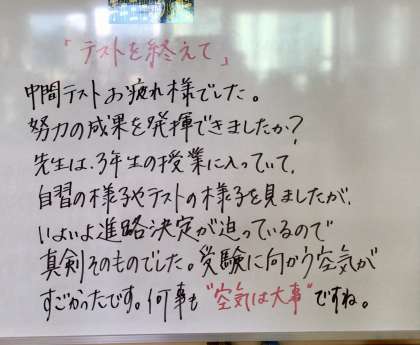 「テストを終えて」
中間テストお疲れ様でした。
努力の成果を発揮できましたか?
先生は、3年生の授業に入っていて、
自習の様子やテストの様子を見ましたが、
いよいよ進路決定が迫っているので
真剣そのものでした。受験に向かう空気が
すごかったです。何事も"空気は大事"ですね。